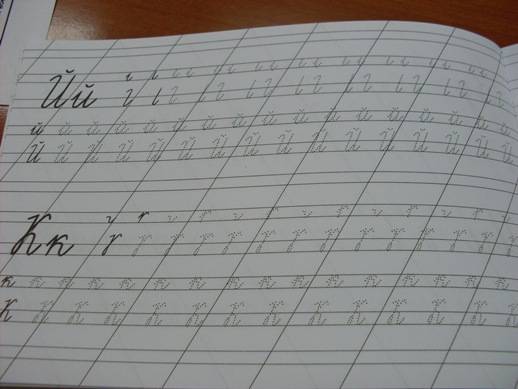 Йй
й й й й й й й й й й й й й й й й
Й Й Й Й Й Й Й Й Й Й Й Й Й Й Й Й
Кк
к к к к к к к к к к к к к к к к
К К К К К К К К К К К К К К